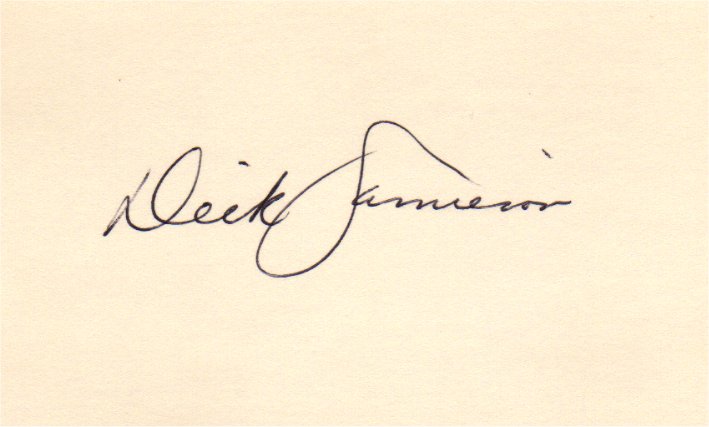 Dick Jamieson